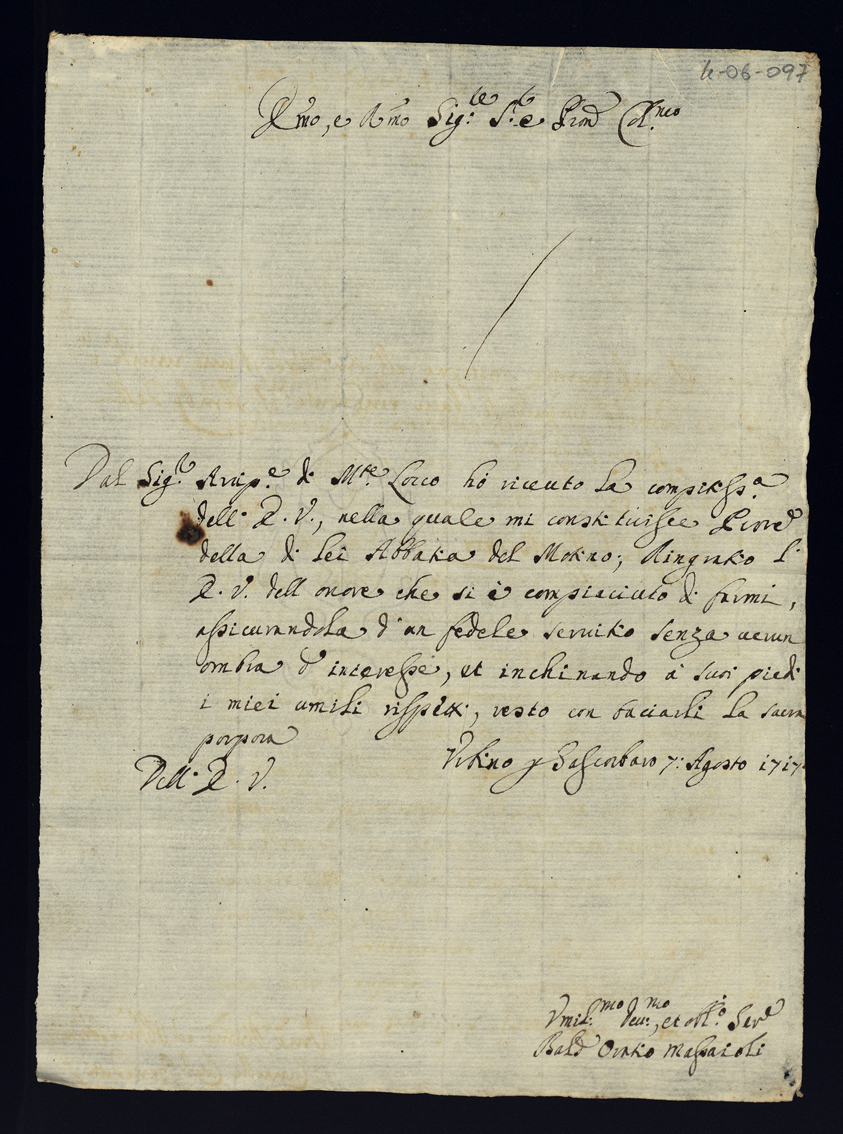 4-06-097
E.mo, e R.mo Sig.re S.re e Pron Col.mo
Dal Sig.r Arcip.e di M.te Locco hò riceuto la compitiss.a
dell' E. V., nella quale mi constituisce Govre
della di lei Abbatia del Motno; Ringratio l'
E. V. dell onore che si è compiaciuto di farmi,
assicurandola d' un fedele servitio senza verun
ombra d' interesse, et inchinando à suoi piedi
i miei umili rispetti, resto con baciarli la sacra
porpora
Dell' E. V. Urbino p 7: Agosto 1717
Umil.mo Deu.mo, et obl.o Ser.e
Bald Oratio Massaioli